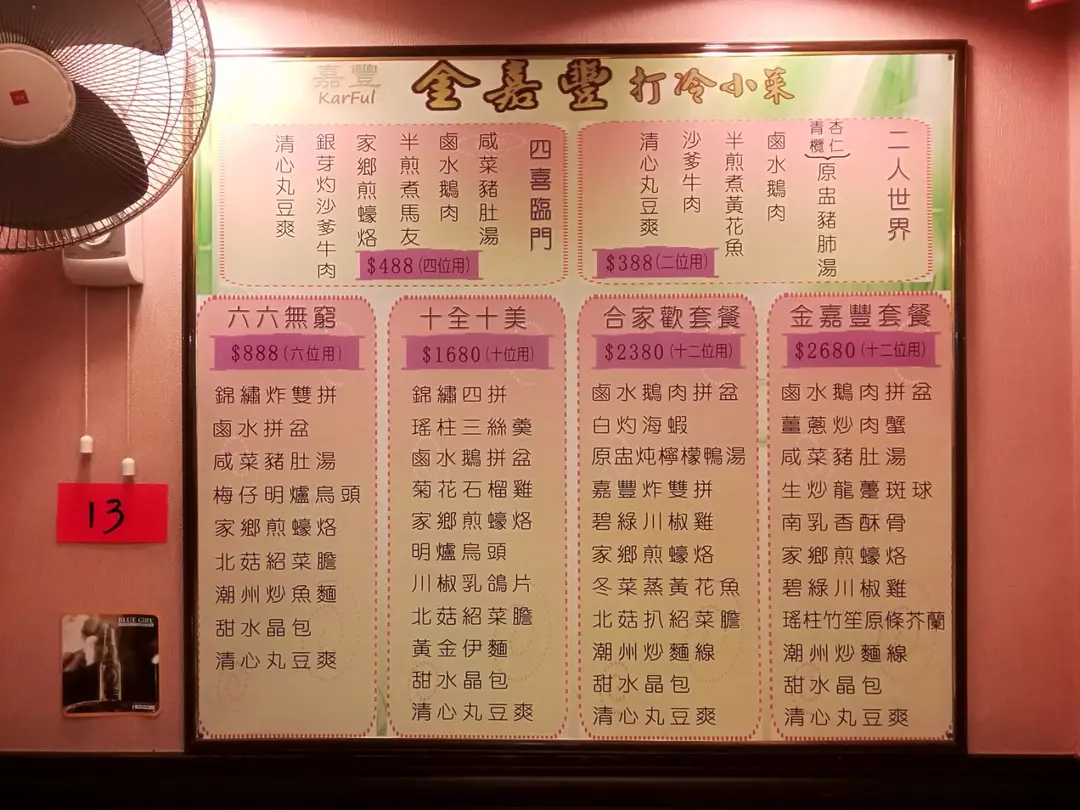 嘉豐
KarFul
金嘉豐打冷小菜
二人世界
青欖 杏仁 原盅豬肺湯
鹵水鵝肉
半煎煮黃花魚
沙爹牛肉
清心丸豆爽
$388(二位用)
四喜臨門
咸菜豬肚湯
鹵水鵝肉
半煎煮馬友
家鄉煎蠔烙
銀芽灼沙爹牛肉
清心丸豆爽
$488(四位用)
六六無窮
$888(六位用)
錦繡炸雙拼
鹵水拼盆
咸菜豬肚湯
梅仔明爐烏頭
家鄉煎蠔烙
北菇紹菜膽
潮州炒魚麵
甜水晶包
清心丸豆爽
十全十美
$1680(十位用)
錦繡四拼
瑤柱三絲羹
鹵水鵝拼盆
菊花石榴雞
家鄉煎蠔烙
明爐烏頭
川椒乳鴿片
北菇紹菜膽
黃金伊麵
甜水晶包
清心丸豆爽
合家歡套餐
$2380(十二位用)
鹵水鵝肉拼盆
白灼海蝦
原盅炖檸檬鴨湯
嘉豐炸雙拼
碧綠川椒雞
家鄉煎蠔烙
冬菜蒸黃花魚
北菇扒紹菜膽
潮州炒麵線
甜水晶包
清心丸豆爽
金嘉豐套餐
$2680(十二位用)
鹵水鵝肉拼盆
薑蔥炒肉蟹
咸菜豬肚湯
生炒龍躉斑球
南乳香酥骨
家鄉煎蠔烙
碧綠川椒雞
瑤柱竹笙原條芥蘭
潮州炒麵線
甜水晶包
清心丸豆爽
13
BLUE GIRL